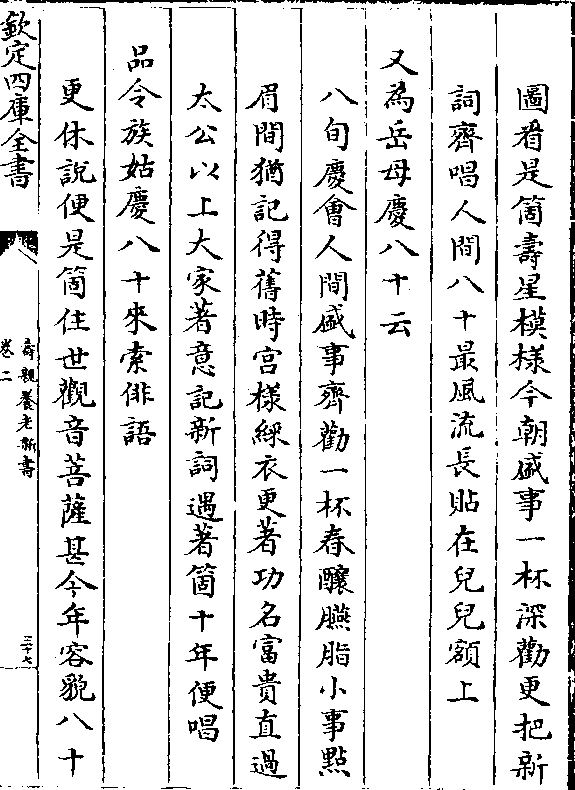 圖看是箇壽星模樣今朝盛事一杯深勸更把新
詞齊唱人間八十最風流長貼在兒兒額上
又為岳母慶八十云
八旬慶會人間盛事齊勸一杯春釀臙脂小事點
眉間猶記得舊時宫様綵衣更著功名富貴直過
太公以上大家著意記新詞遇著箇十年便唱
品令族姑慶八十來索俳語
更休說便是箇住世觀音菩薩甚今年容貌八十
欽定四庫全書
壽親養老新書
卷二
三十七